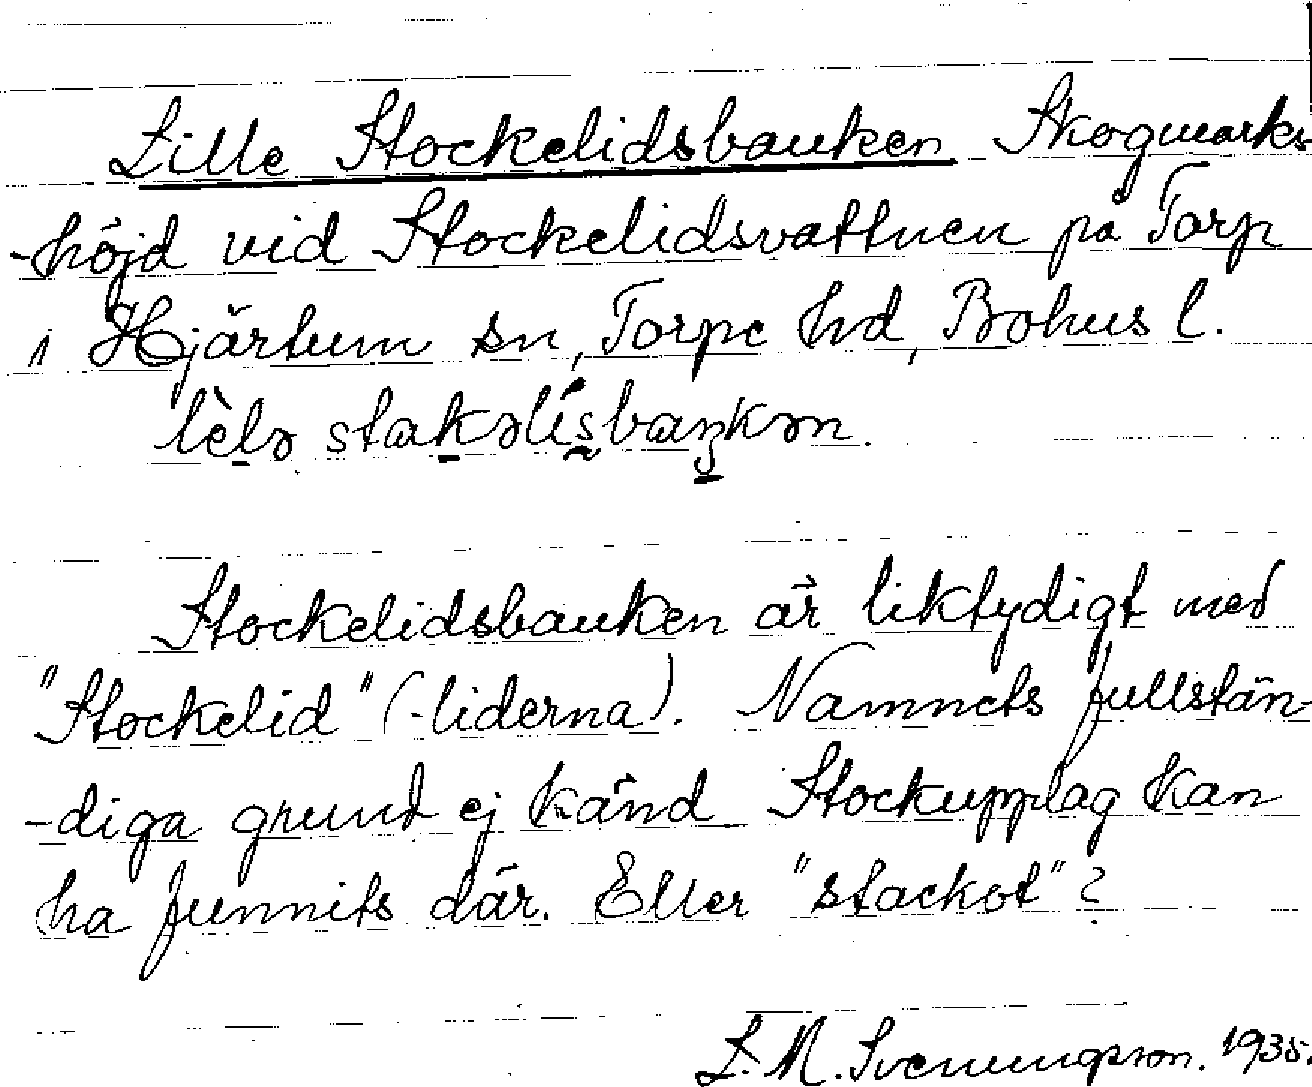 Lille Stockelidsbanken Skogmarks-
-höjd vid Stockelidsvattnen på Torp
i Hjärtum sn, Torpe hd, Bohus l.
lèlə stakəlísbaŋkən.
Stockelidsbanken är liktydigt med
"Stockelid" (-liderna). Namnets fullstän-
-diga grund ej känd Stockupplag kan
ha funnits där. Eller "stackot"?
L. M. Svenungson. 1935.